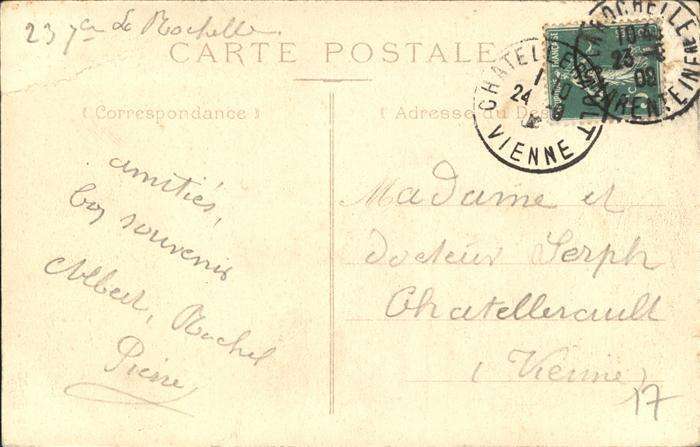 23 La Rochelle
CARTE POSTALE
(Correspondance)
Adresse du
amitiés,
bon souvenir
Albert, Rachel
Pierre
Madame et
docteur Serph
Chatellerault
(Vienne)
17
CHATELLERAULT
24
VIENNE
LA ROCHELLE
23
CHARENTE INFRE